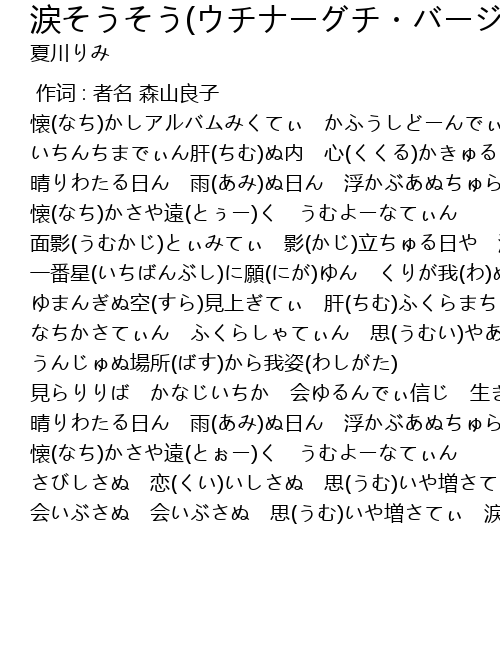 涙そうそう(ウチナーグチ・バージ
夏川りみ
作词 : 者名 森山良子
懐(なち)かしアルバムみくてぃ　かふうしどーんでぃ
いちんちまでぃん肝(ちむ)ぬ内　心(くくる)かきゅる
晴りわたる日ん　雨(あみ)ぬ日ん　浮かぶあぬちゅら
懐(なち)かさや遠(とぅー)く　うむよーなてぃん
面影(うむかじ)とぃみてぃ　影(かじ)立ちゅる日や
一番星(いちばんぶし)に願(にが)ゆん　くりが我(わ)ぬ
ゆまんぎぬ空(すら)見上ぎてぃ　肝(ちむ)ふくらまち
なちかさてぃん　ふくらしゃてぃん　思(うむい)やあ
うんじゅぬ場所(ばす)から我姿(わしがた)
見らりりば　かなじいちか　会ゆるんでぃ信じ　生き
晴りわたる日ん　雨(あみ)ぬ日ん　浮かぶあぬちゅら
懐(なち)かさや遠(とぉー)く　うむよーなてぃん
さびしさぬ　恋(くい)いしさぬ　思(うむ)いや増さて
会いぶさぬ　会いぶさぬ　思(うむ)いや増さてぃ　涙